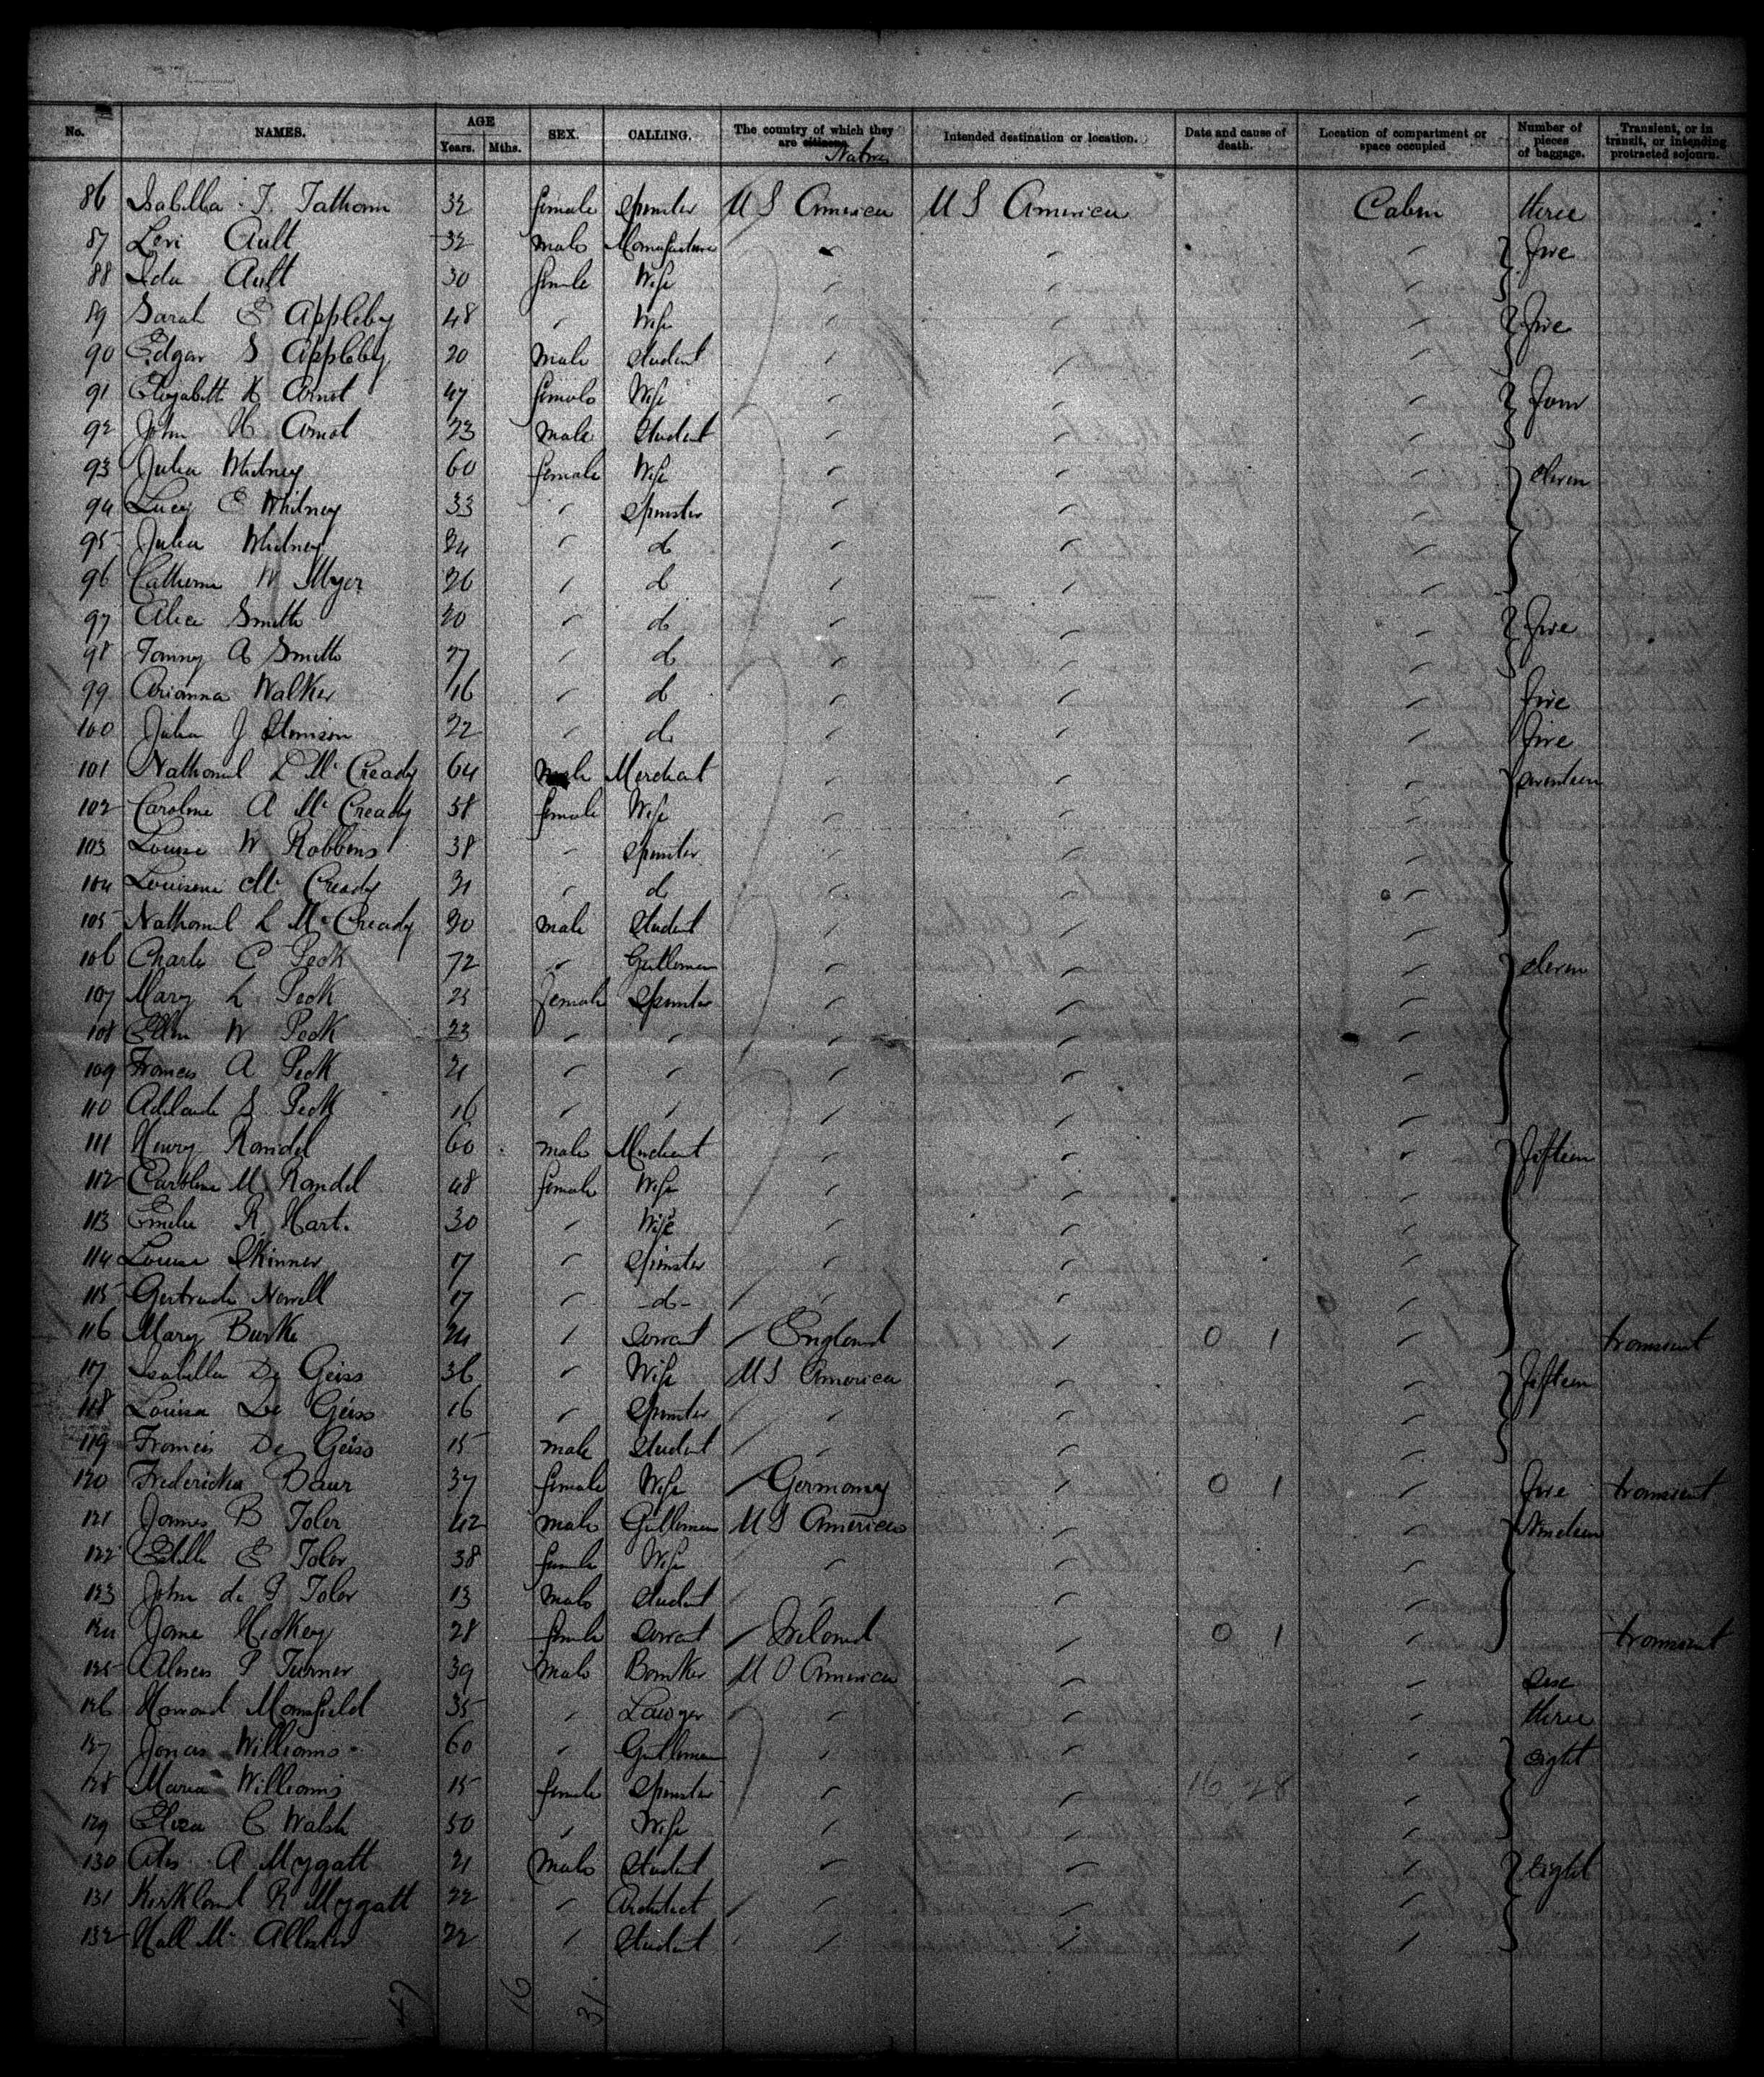 No. NAMES. AGE Years. Mths. SEX. CALLING. The country of which they are citizens Native Intended destination or location. Date and cause of death. Location of compartment or space occupied Number of pieces of baggage. Transient, or in transit, or intending protracted sojourn.
86 Isabella T. Tathom 32 female Spinster U S America U S America Cabin three
87 Levi Ault 32 male Manufacturer five
88 Ida Ault 30 female Wife
89 Sarah E Appleby 48 " Wife five
90 Edgar S Appleby 20 male Student
91 Elizabeth H Arnot 47 female Wife four
92 John H Arnot 23 male Student
93 Julia Whitney 60 female Wife eleven
94 Lucy E Whitney 33 " Spinster
95 Julia Whitney 24 " do
96 Catherine W Myer 26 " do
97 Alice Smith 20 " do five
98 Fanny A Smith 27 " do
99 Arianna Walker 16 " do five
100 Julia J 22 " do five
101 Nathaniel L Mc Cready 64 male Merchant seventeen
102 Caroline A Mc Cready 58 female Wife
103 Louise W Robbins 38 " Spinster
104 Mc Cready 21 " do
105 Nathaniel L Mc Cready 20 male Student
106 Charles C Peck 72 " Gentleman eleven
107 Mary L Peck 25 female Spinster
108 Ellen W Peck 23 " "
109 Frances A Peck 21 " "
110 Adelaide S Peck 16 " "
111 Henry Randel 60 male Merchant fifteen
112 Caroline M Randel 48 female Wife
113 Emelie R Hart. 30 " Wife
114 Louise Skinner 17 " Spinster
115 Gertrude Newell 17 " -do-
116 Mary Burke 24 " Servant England 0 1 transient
117 Isabella De Geiss 36 " Wife U S America fifteen
118 Louisa De Geiss 16 " Spinster
119 Francis De Geiss 15 male Student
120 Fredericka Baur 37 female Wife Germany 0 1 five transient
121 James B Toler 42 male Gentleman U S America Nineteen
122 Estelle E Toler 38 female Wife
123 John de P Toler 13 male Student
124 Jane Hickey 28 female Servant Ireland 0 1 transient
125 P Turner 39 male Banker U S America one
126 Howard Mansfield 35 " Lawyer three
127 Jonas Williams 60 " Gentleman eight
128 Maria Williams 15 female Spinster 16 28
129 Eliza C Walsh 50 " Wife
130 Otis A Mygatt 21 male Student eight
131 Kirkland R Mygatt 22 " Architect
132 Hall Mc Allister 22 " Student
47 16 31